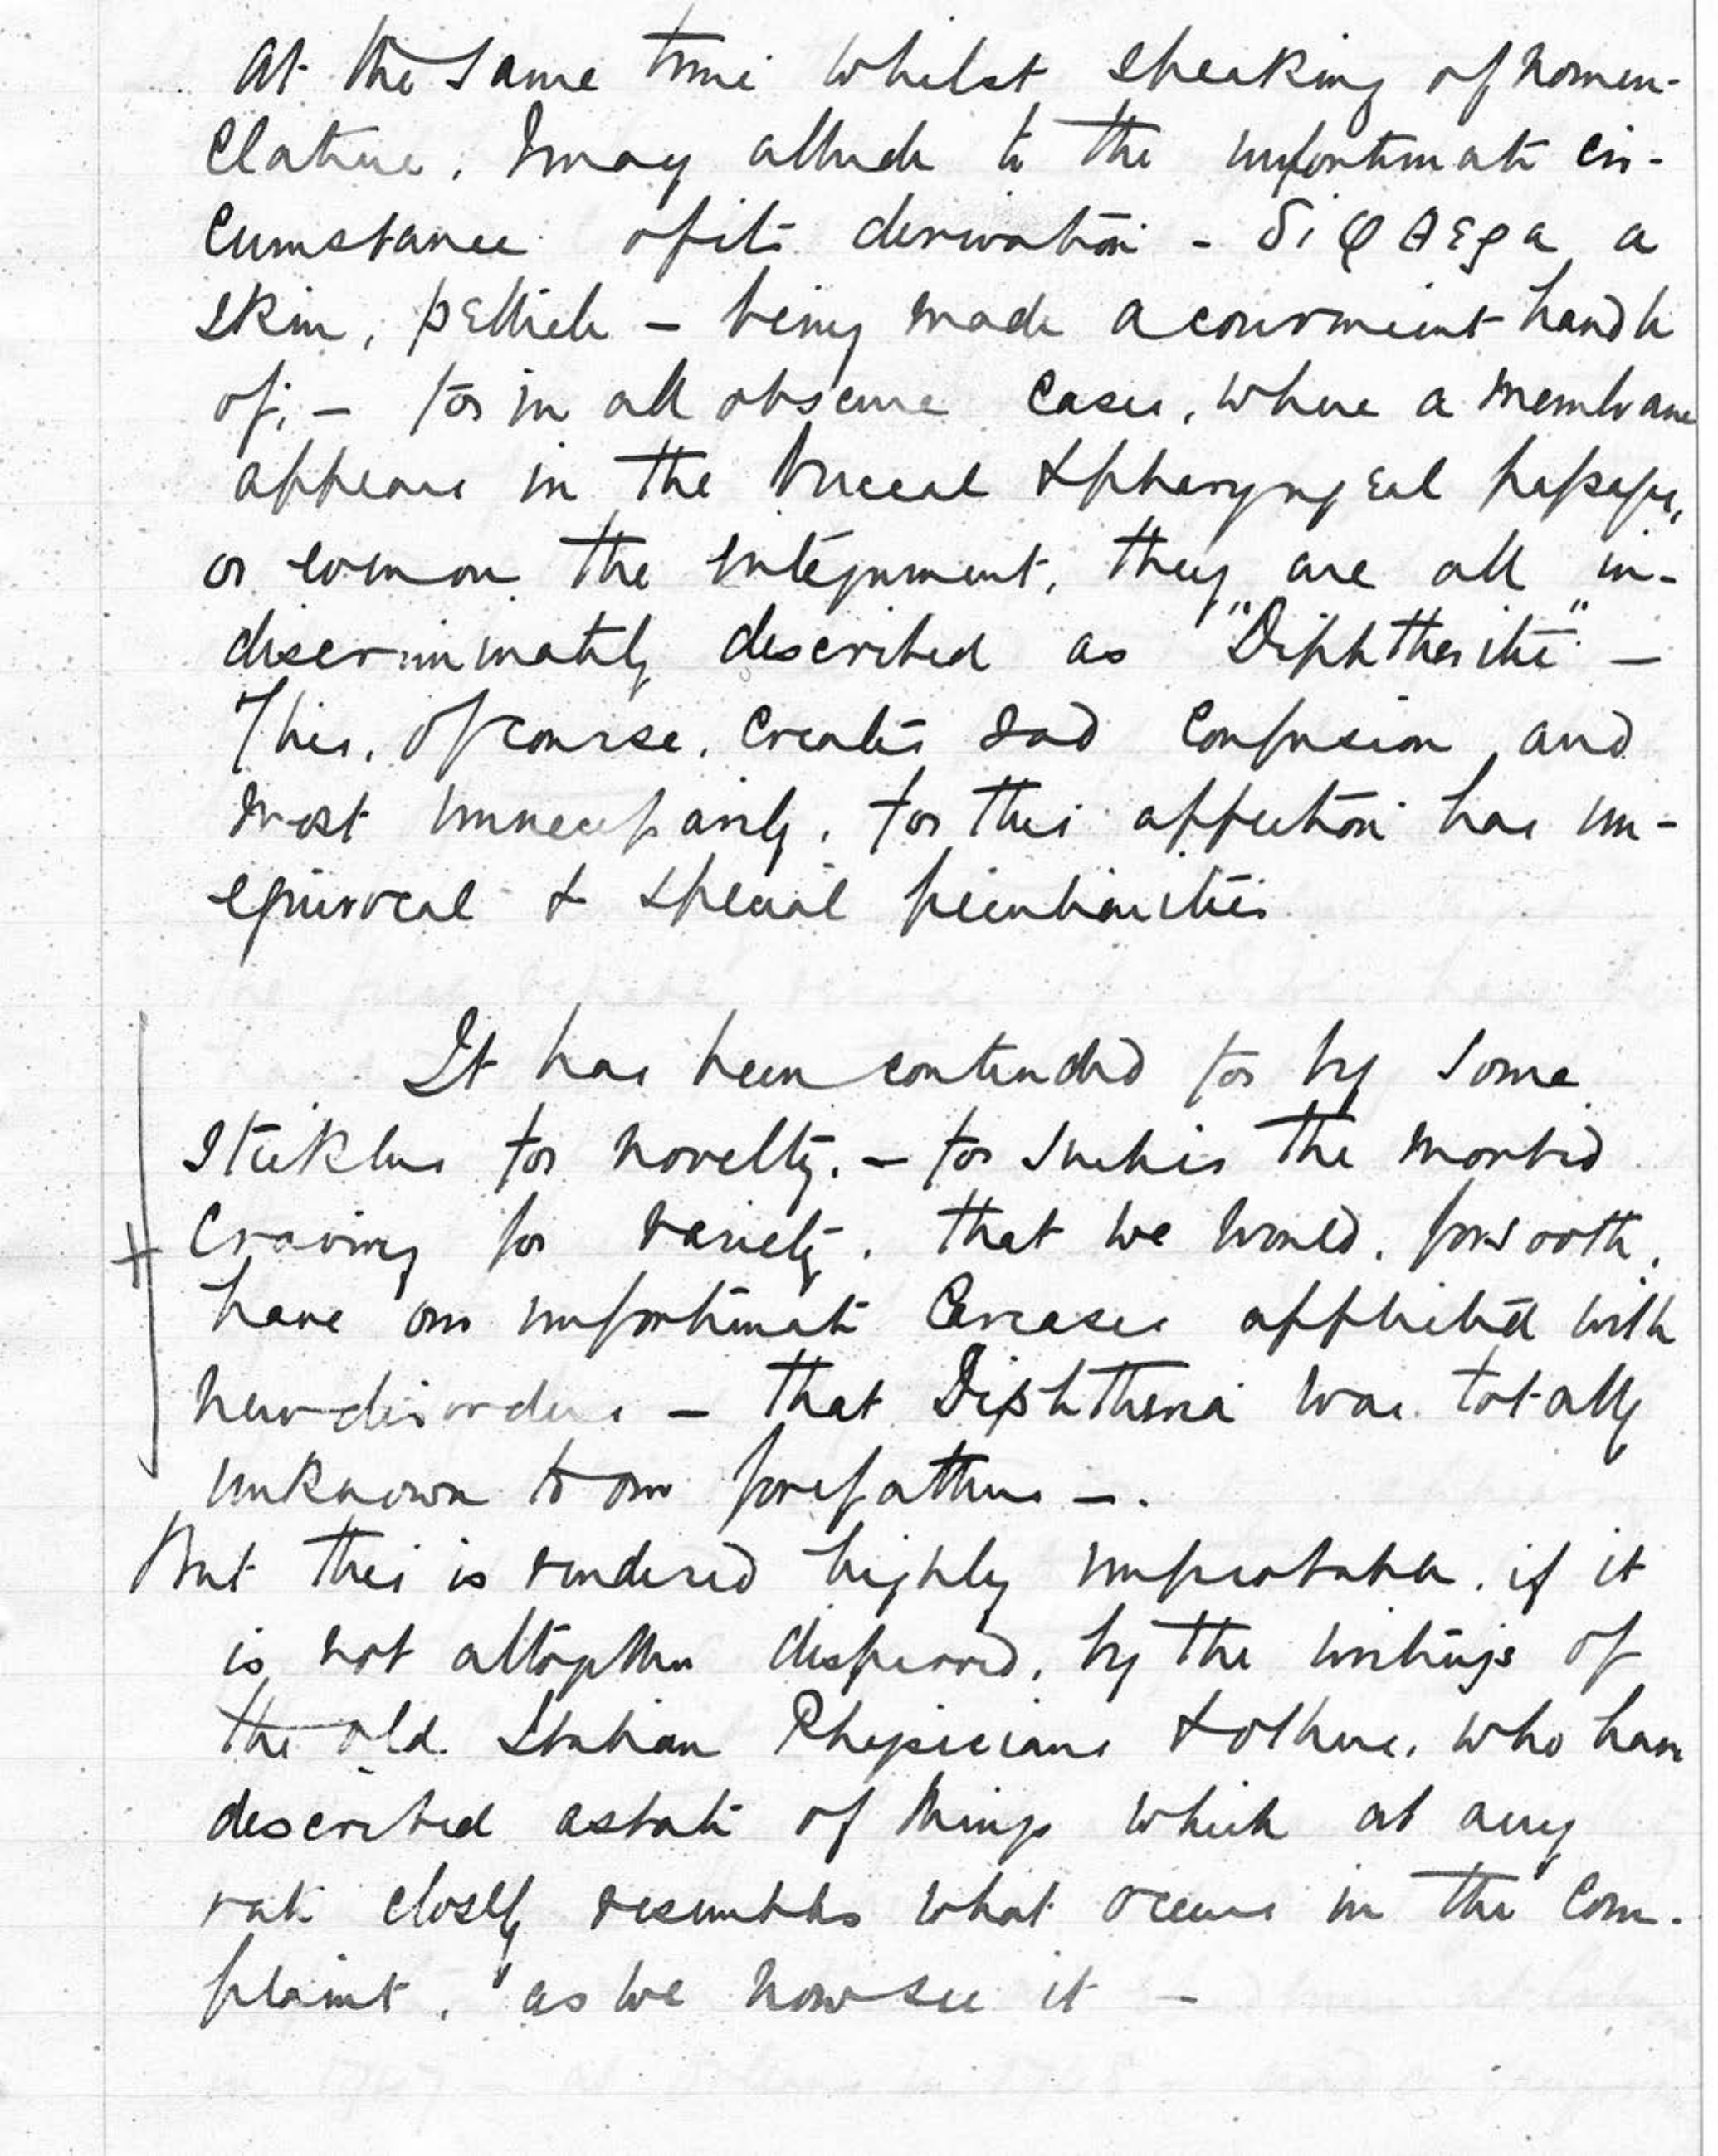 At the same time whilst speaking of nomen-
clature, I may allude to the unfortunate cir-
cumstance of its derivation - διφθερα a
skin, pellicle - being made a convenient handle
of; - for in all obscure cases, where a membrane
appears in the buccal & pharyngeal passages,
or even on the integument, they are all in-
discriminately described as "Diphtherite" -
This, of course, creates sad confusion, and
most unnecessarily, for this affection has un-
equivocal & special peculiarities
It has been contended for by some
sticklers for novelty, - for such is the morbid
craving for variety, that we would, forsooth,
have our unfortunate carcases afflicted with
new disorders - that Diphtheria was totally
unknown to our forefathers -.
But this is rendered highly improbable, if it
is not altogether disproved, by the writings of
the old Italian Physicians & others, who have
described a state of things which at any
rate closely resembles what occurs in the com-
plaint, as we now see it -